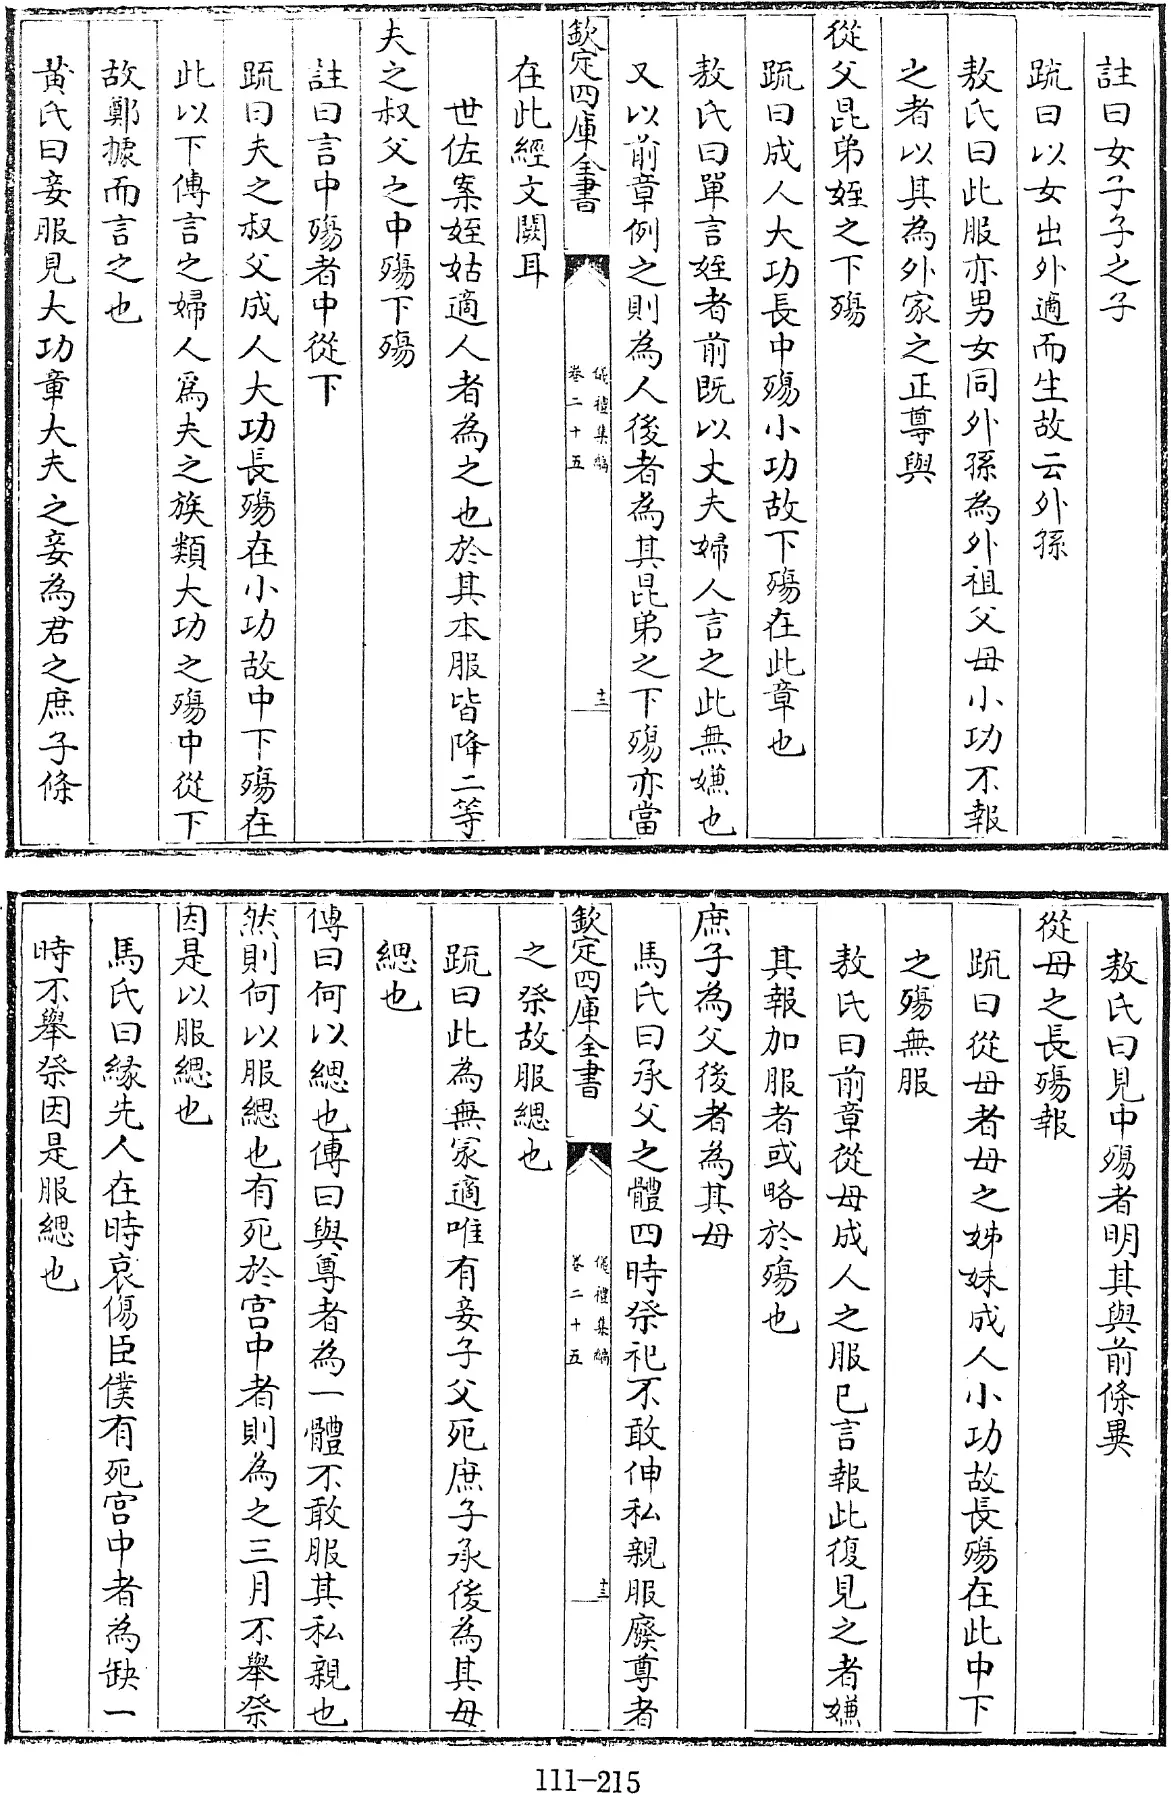 註曰女子子之子
疏曰以女出外適而生故云外孫
敖氏曰此服亦男女同外孫為外祖父母小功不報
之者以其為外家之正尊與
從父昆弟姪之下殤
疏曰成人大功長中殤小功故下殤在此章也
敖氏曰單言姪者前既以丈夫婦人言之此無嫌也
又以前章例之則為人後者為其昆弟之下殤亦當
欽定四庫全書
儀禮集編
卷二十五
十二
在此經文闕耳
世佐案姪姑適人者為之也於其本服皆降二等
夫之叔父之中殤下殤
註曰言中殤者中從下
疏曰夫之叔父成人大功長殤在小功故中下殤在
此以下傳言之婦人爲夫之族類大功之殤中從下
故鄭據而言之也
黄氏曰妾服見大功章大夫之妾為君之庶子條
敖氏曰見中殤者明其與前條異
從母之長殤報
疏曰從母者母之姊妹成人小功故長殤在此中下
之殤無服
敖氏曰前章從母成人之服已言報此復見之者嫌
其報加服者或略於殤也
庶子為父後者為其母
馬氏曰承父之體四時祭祀不敢伸私親服廢尊者
欽定四庫全書
儀禮集編
卷二十五
十三
之祭故服緦也
疏曰此為無冢適唯有妾子父死庶子承後為其母
緦也
傳曰何以緦也傳曰與尊者為一體不敢服其私親也
然則何以服緦也有死於宮中者則為之三月不舉祭
因是以服緦也
馬氏曰緣先人在時哀傷臣僕有死宮中者為缺一
時不舉祭因是服緦也
111-215